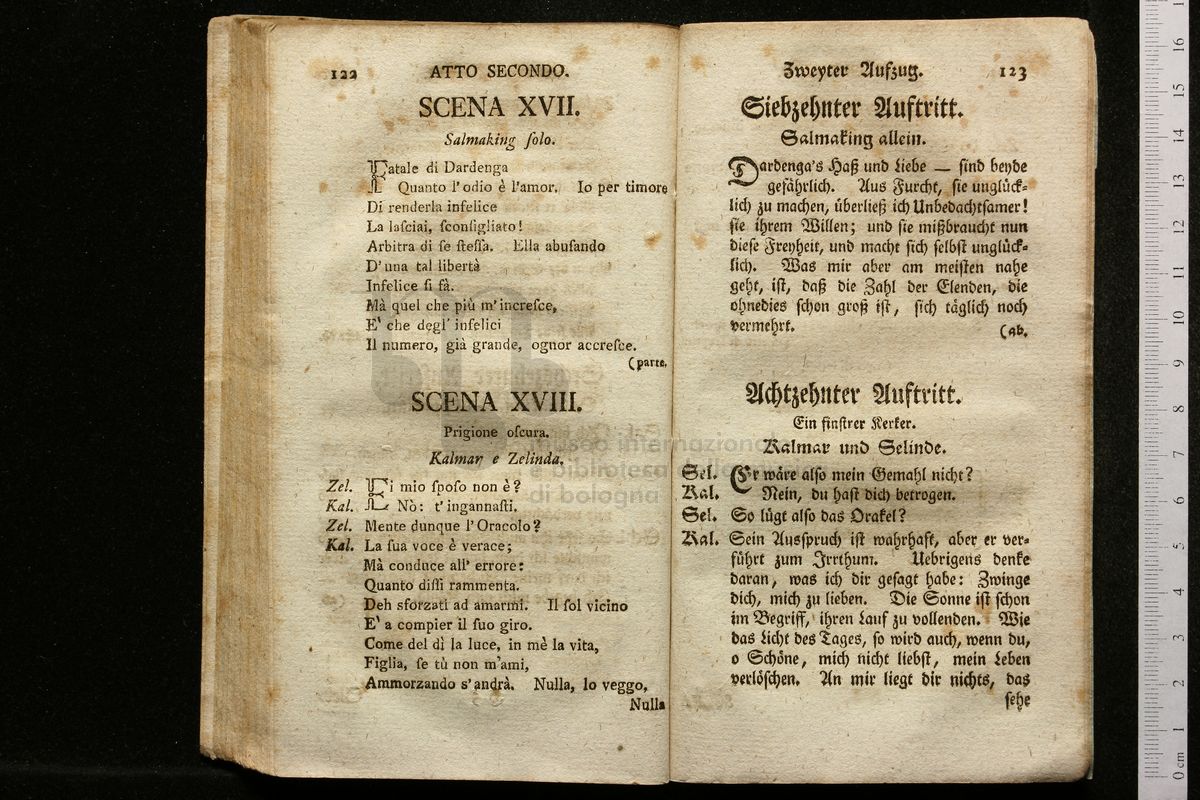 122 ATTO SECONDO.
SCENA XVII.
Salmaking ſolo.
Fatale di Dardenga
Quanto l'odio è l'amor. Io per timore
Di renderla infelice
La laſciai, ſconſigliato!
Arbitra di ſe ſteſſa. Ella abuſando
D'una tal libertà
Infelice ſi fà.
Mà quel che più m'increſce,
E' che degl' infelici
Il numero, già grande, ognor accreſce.
(parte.
SCENA XVIII.
Prigione oſcura.
Kalmar e Zelinda.
Zel. Ei mio ſpoſo non è?
Kal. Nò: t'ingannaſti.
Zel. Mente dunque l'Oracolo?
Kal. La ſua voce è verace;
Mà conduce all' errore:
Quanto diſſi rammenta.
Deh sforzati ad amarmi. Il ſol vicino
E' a compier il ſuo giro.
Come del dì la luce, in mè la vita,
Figlia, ſe tù non m'ami,
Ammorzando s'andrà. Nulla, lo veggo,
Nulla
Zweyter Aufzug. 123
Siebzehnter Auftritt.
Salmaking allein.
Dardenga's Haß und Liebe — ſind beyde
gefährlich. Aus Furcht, ſie unglück-
lich zu machen, überließ ich Unbedachtſamer!
ſie ihrem Willen; und ſie mißbraucht nun
dieſe Freyheit, und macht ſich ſelbſt unglück-
lich. Was mir aber am meiſten nahe
geht, iſt, daß die Zahl der Elenden, die
ohnedies ſchon groß iſt, ſich täglich noch
vermehrt.
(ab.
Achtzehnter Auftritt.
Ein finſtrer Kerker.
Kalmar und Selinde.
Sel. Er wäre alſo mein Gemahl nicht?
Kal. Nein, du haſt dich betrogen.
Sel. So lügt alſo das Orakel?
Kal. Sein Ausſpruch iſt wahrhaft, aber er ver-
führt zum Irrthum. Uebrigens denke
daran, was ich dir geſagt habe: Zwinge
dich, mich zu lieben. Die Sonne iſt ſchon
im Begriff, ihren Lauf zu vollenden. Wie
das Licht des Tages, ſo wird auch, wenn du,
o Schöne, mich nicht liebſt, mein Leben
verlöſchen. An mir liegt dir nichts, das
ſehe
museo internazionale
e biblioteca della
di bologna
0 cm 1 2 3 4 5 6 7 8 9 10 11 12 13 14 15 16